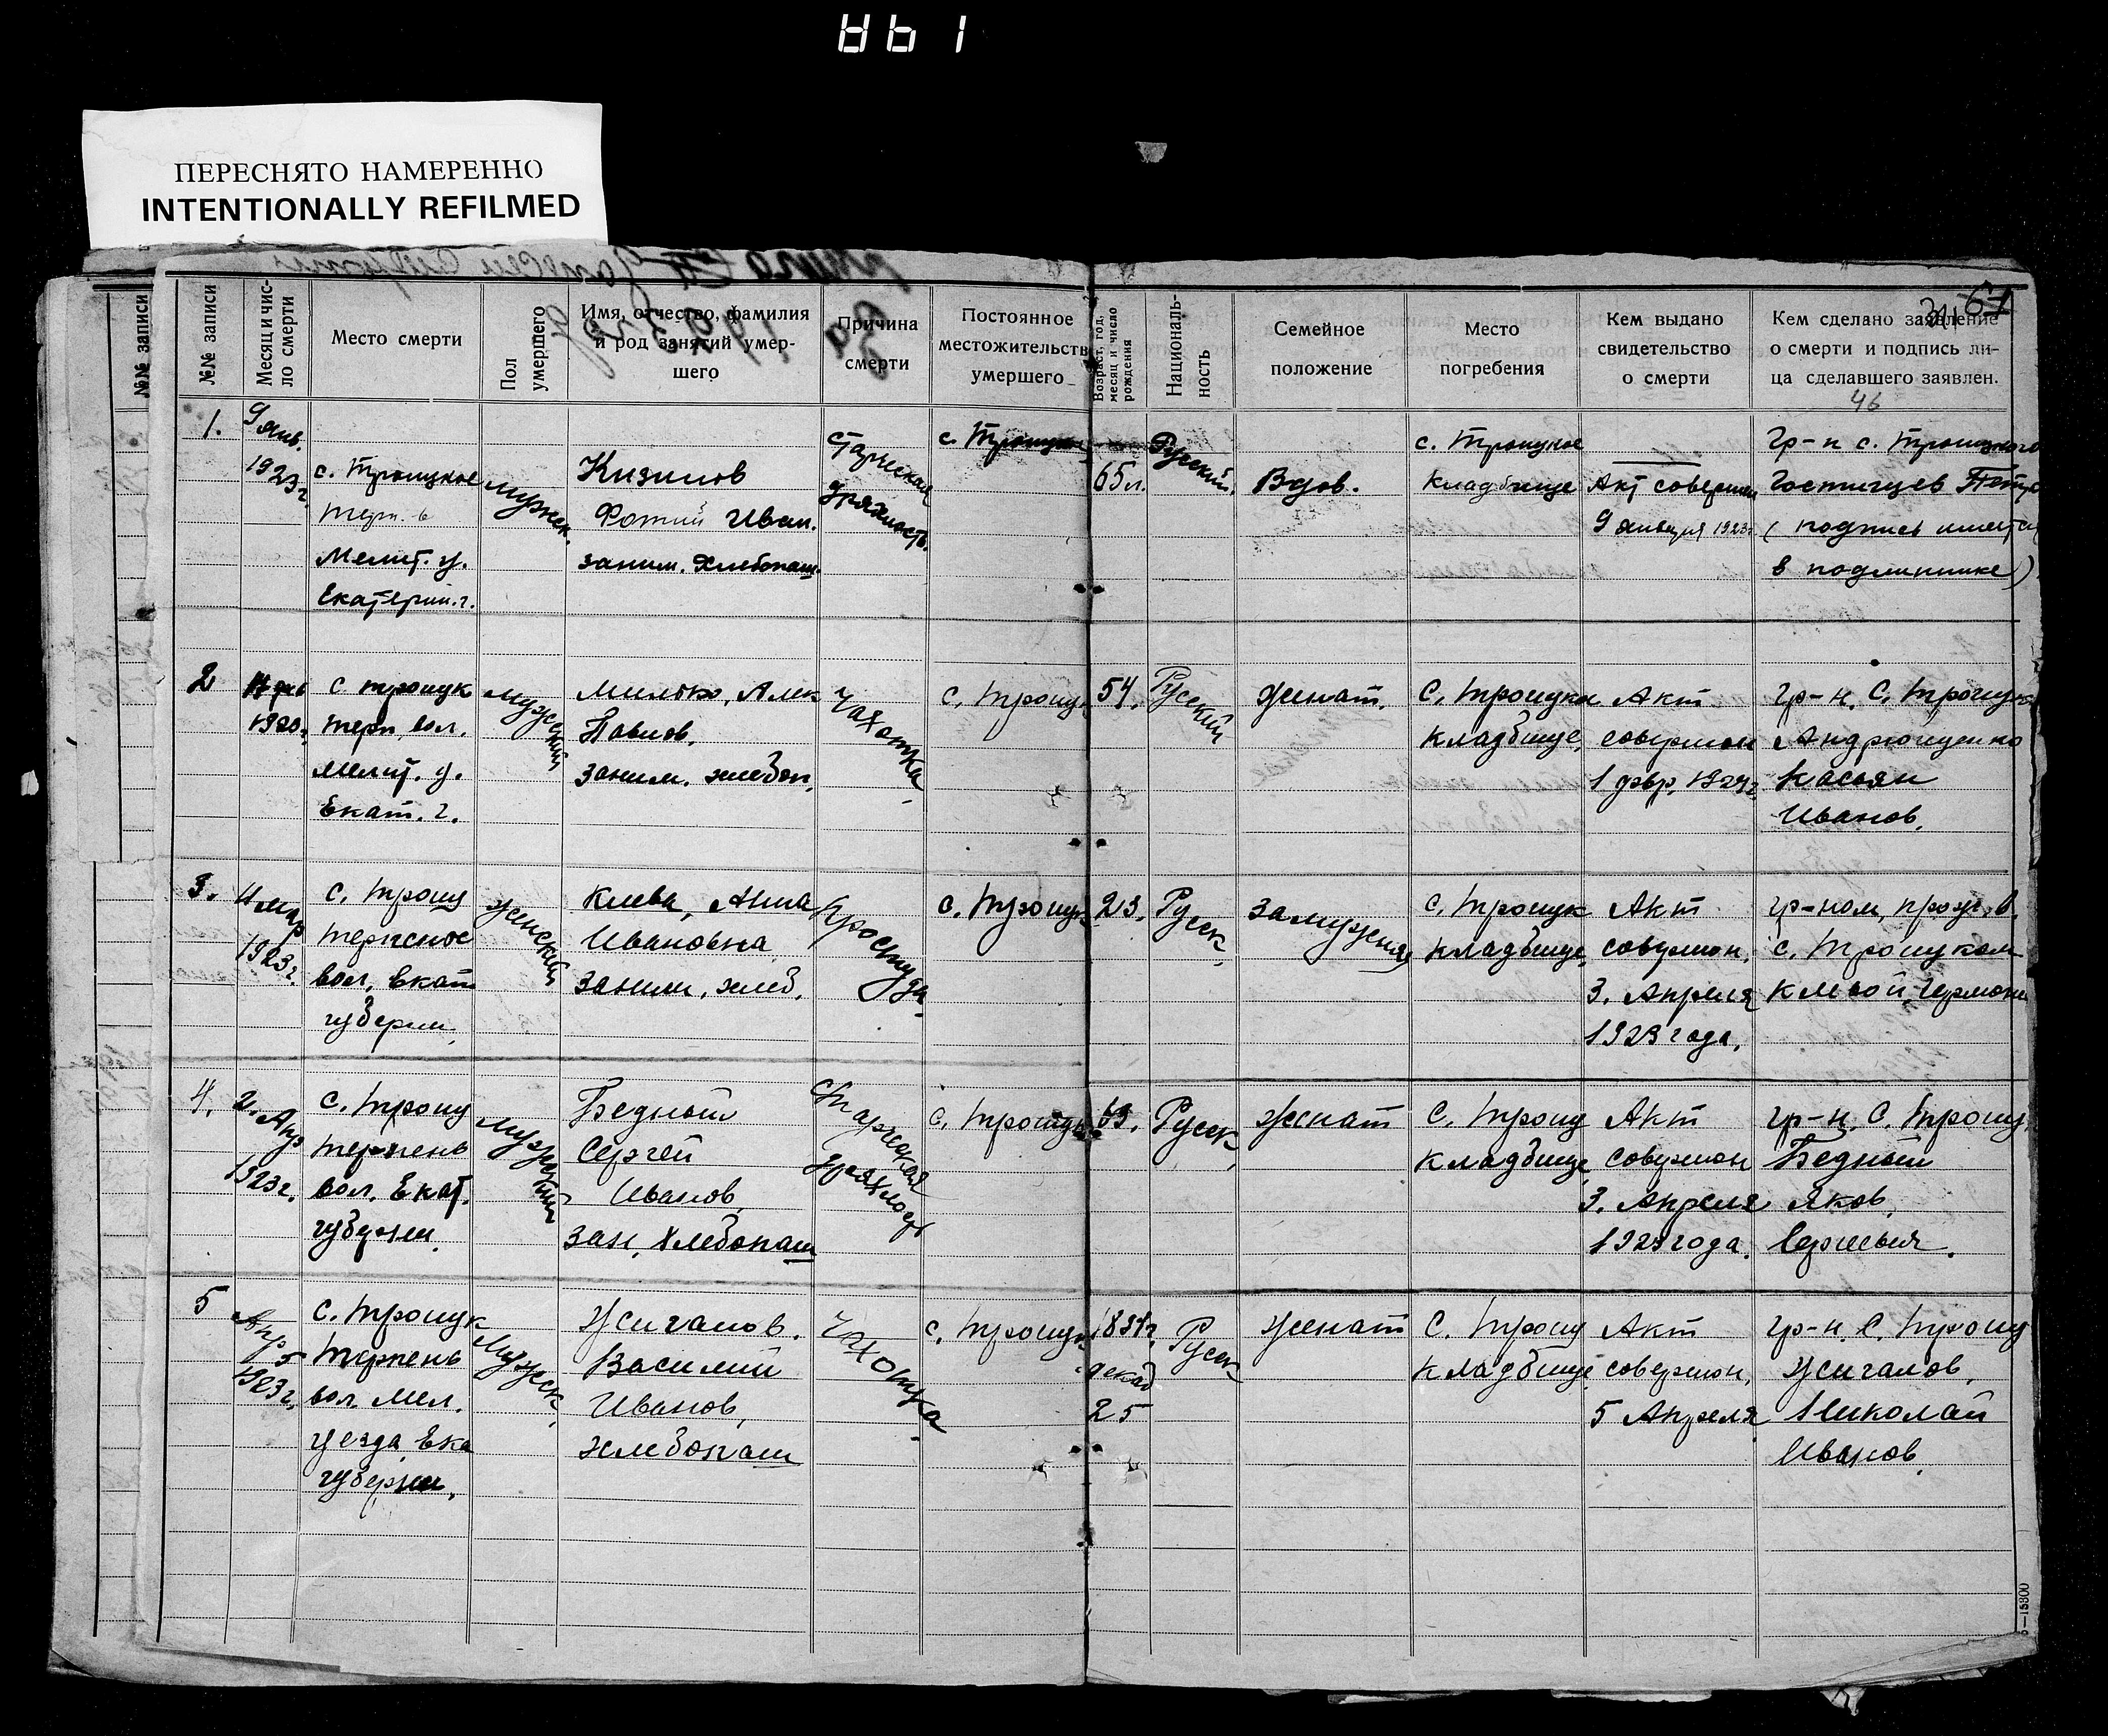 ПЕРЕСНЯТО НАМЕРЕННО
INTENTIONALLY REFILMED
№№ записи
№№ записи
Месяц и чис-
ло смерти
Место смерти
Пол
умершего
Имя, отчество, фамилия
и род занятий умер-
шего
Причина
смерти
Постоянное
местожительств
умершего
Возраст, год,
месяц и число
рождения
Националь-
ность
Семейное
положение
Место
погребения
Кем выдано
свидетельство
о смерти
Кем сделано заявление
о смерти и подпись ли-
ца сделавшего заявлен.
46
1.
9 янв.
1923 г.
с. Троицкое
терп. в
Мелит. у.
Екатерин. г.
мужск.
Кизилов
Фотий Иван.
заним. хлебопаш.
старческая
дряхлость.
с. Троицкое
65 л.
Русский.
Вдов.
с. Троицкое
кладбище
Акт совершен
9 января 1923 г.
Гр-н с. Троицкого
Гостищев Петр
(подпись имеется
в подлиннике)
2
с троицк
терп. вол.
мелит. у.
Екат. г.
мужский
Милько, Алек
Павлов.
заним. хлебоп.
чахотка.
с. троицк
54.
Русский
женат.
с. троицком
кладбище,
Акт
совершон
гр-н. с. троицк
Андрющенко
Касьян
Иванов.
3.
11 мар
1923 г.
с. троиц
терпеное
вол. екат
губерни.
женский
Клева, Анна
Ивановна
заним. хлеб.
Простуда.
с. троицк
23.
Русск.
замужняя
с. троицк
кладбище,
Акт
совершон.
3. Апреля
1923 года.
гр-ном, прож. в.
с. троицком
4.
2. Апр
1923 г.
с. троиц
терпень
вол. Екат.
губерни.
мужский
Бедный
Сергей
Иванов
зан. хлебопаш
Старческая
дряхлост
с. троицк
63.
Русск
женат
с. троиц
кладбище
Акт
совершон
3. Апреля
1923 года.
гр-н. с. троиц.
Бедный
Яков,
Сергеевич.
5
Апр 5
1923 г.
с. троицк
терпень
вол. Мел.
уезда Ека
губерни.
мужск.
Жигалов.
Василий
Иванов,
хлебопаш
Чахотка
с. троицк
декаб
25
Русск
женат
с. троиц
кладбище
Акт
совершон.
5 Апреля
гр-н. с. троиц
Жигалов,
Николай
Иванов.